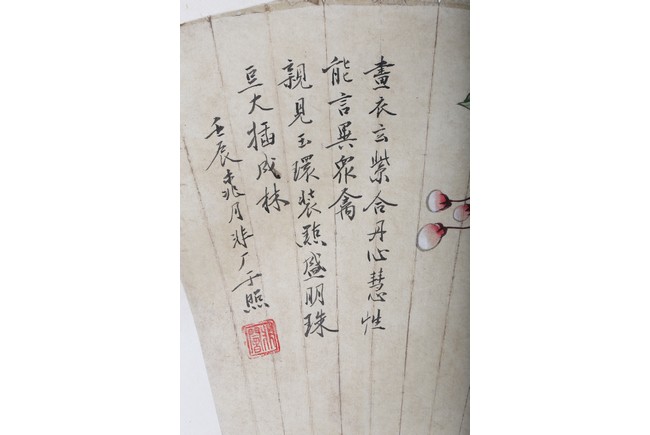 畫衣云紫合丹心慧性
能言異衆禽
親見玉環裝點盛明珠
豆大插成林
壬辰桃月非厂于照
非闇